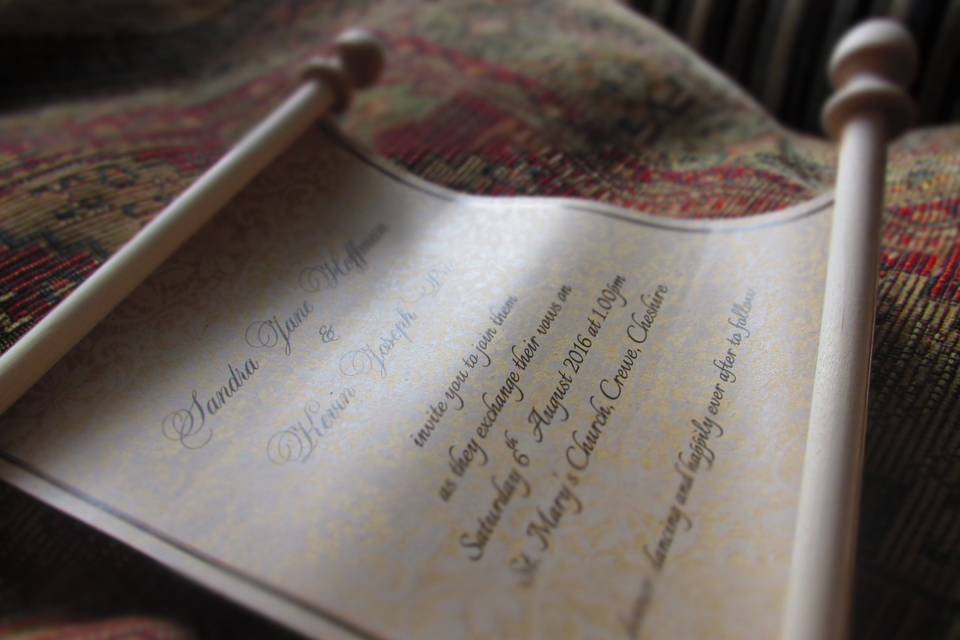 Sandra Jane Hoffman
&
Kevin Joseph
invite you to join them
as they exchange their vows on
Saturday 6th August 2016 at 1.00pm
St. Mary's Church, Crewe, Cheshire
dancing and happily ever after to follow